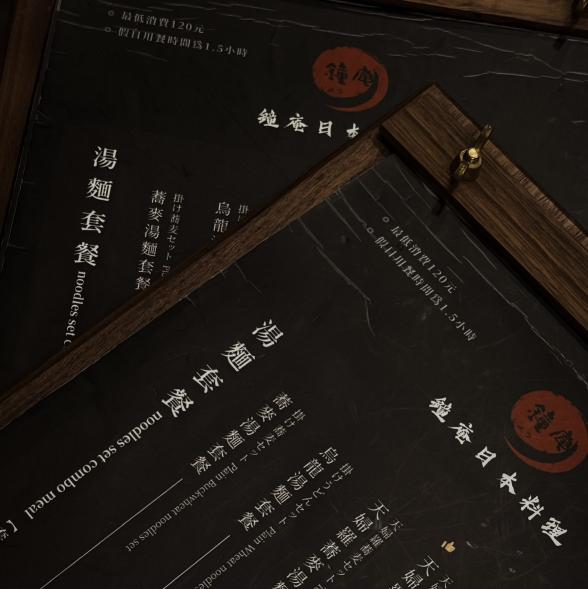 最低消費120元
假日用餐時間爲1.5小時
鐘庵
鐘庵日本
湯麵套餐 noodles set c
掛け蕎麦セット
蕎麥湯麵套餐
烏龍
最低消費120元
假日用餐時間爲1.5小時
鐘庵
鐘庵日本料理
湯麵套餐 noodles set combo meal
掛け蕎麦セット Plain Buckwheat noodles set
蕎麥湯麵套餐
掛けうどんセット Plain Wheat noodles
烏龍湯麵套餐
天婦羅蕎麦セット
天婦羅蕎麥湯
天婦